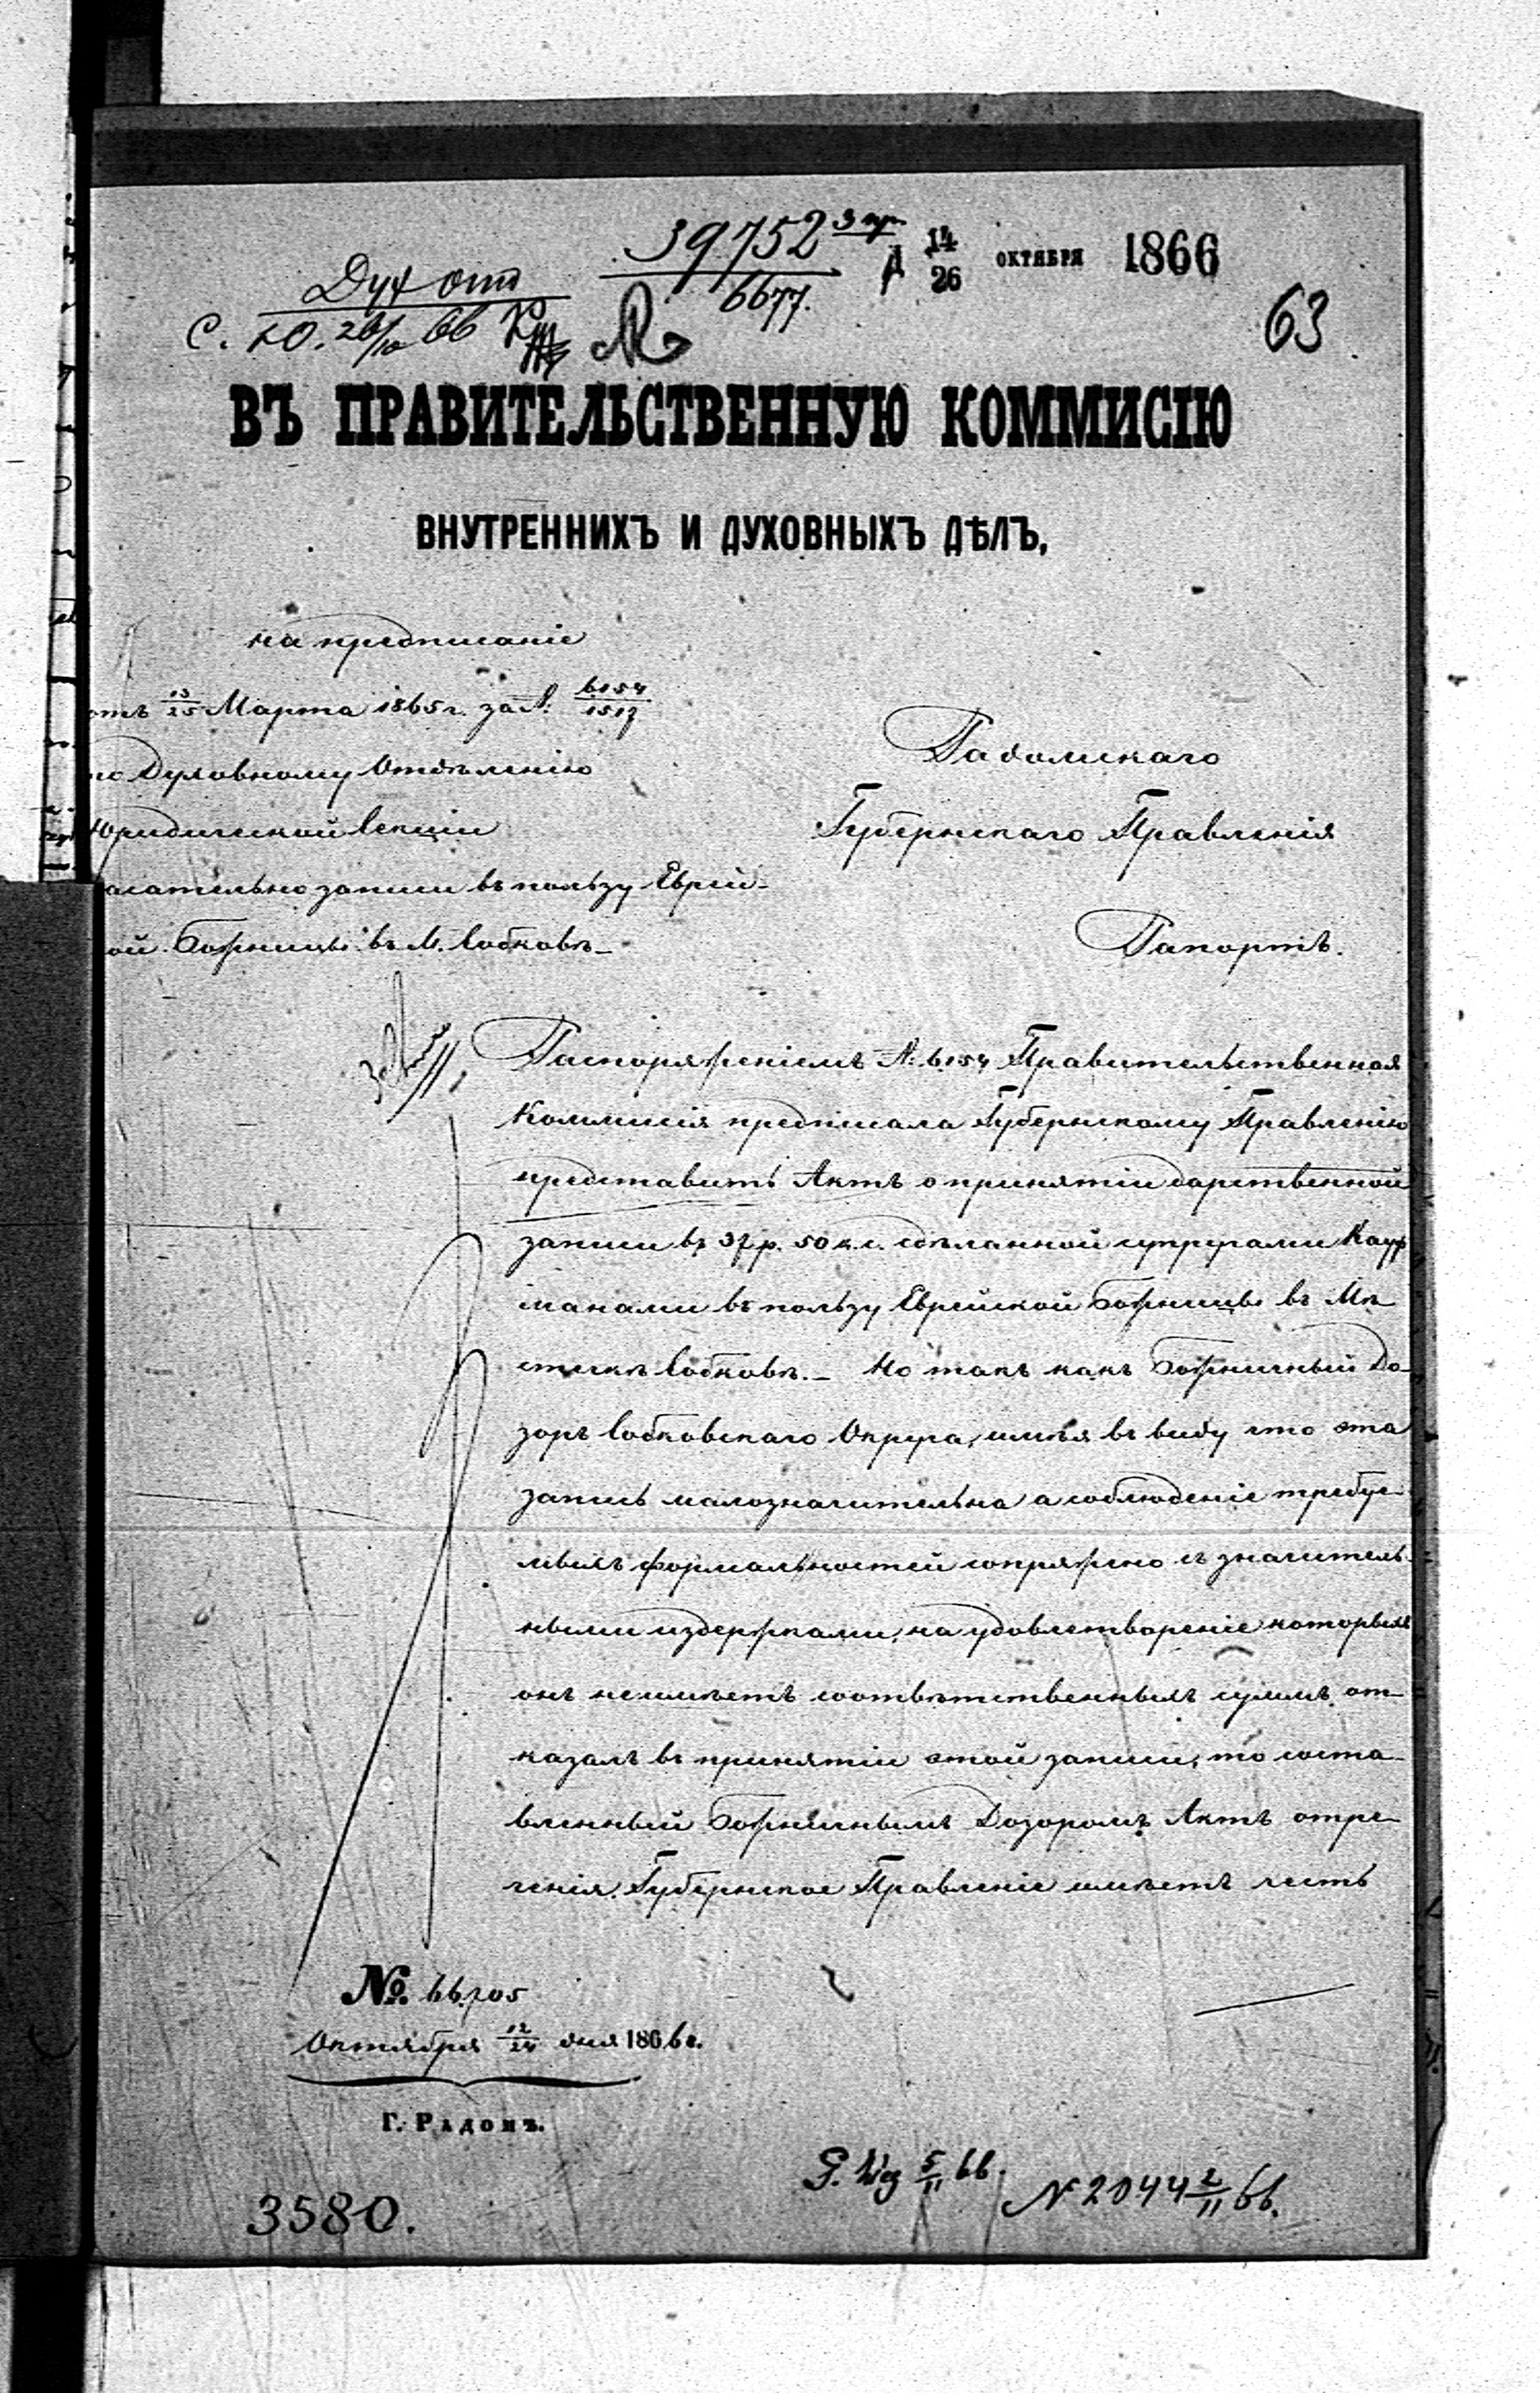 39752 3 пр.
6677.
Д 14/26 ОКТЯБРЯ 1866
Дух отд
С. Ю. 26/10 66
63
ВЪ ПРАВИТЕЛЬСТВЕННУЮ КОММИСІЮ
ВНУТРЕННИХЪ И ДУХОВНЫХЪ ДѢЛЪ,
на предписаніе
отъ 13/25 Марта 1865 г. за №: 6154/1517
по Духовному Отдѣленію
Юридической Секціи
асательно записи въ пользу Еврей-
ой Божницы въ М. Собковѣ_
Радомскаго
Губернскаго Правленія
Рапортъ.
Распоряженіемъ №: 6154 Правительственная
Коммисія предписала Губернскому Правленію
представить Актъ о принятіи дарственной
записи въ 37 р. 50 к. с. сдѣланной супругами Кауф
манами въ пользу Еврейской Божницы въ Мѣ
стечкѣ Собковѣ._ Но такъ какъ Божничный До-
зоръ Собковскаго Округа, имѣя въ виду что эта
запись малозначительна а соблюденіе требуе-
мыхъ формальностей сопряжено съ значитель-
ными издержками, на удовлетвореніе которыхъ
онъ неимѣетъ соотвѣтственныхъ суммъ, от-
казалъ въ принятіи этой записи, то соста-
вленный Божничнымъ Дозоромъ Актъ отре-
ченія, Губернское Правленіе имѣетъ честь
№. 66,705
Октября 12/24 дня 1866 г.
Г. РАДОМЪ.
3580.
5/11 66.
N 2044 2/11 66.